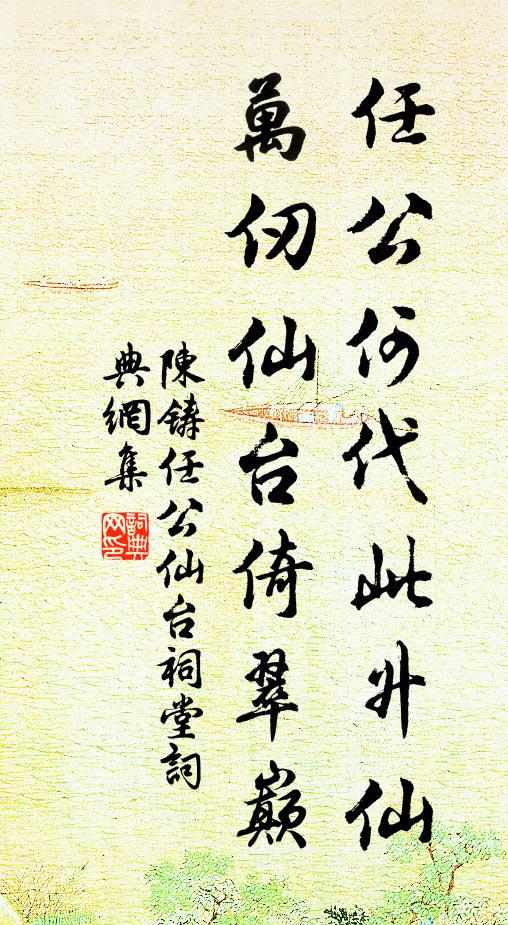 任公何代此升仙
萬仞仙台倚翠巔
陳鑄任公仙台祠堂詞
典網集
詞典
网印